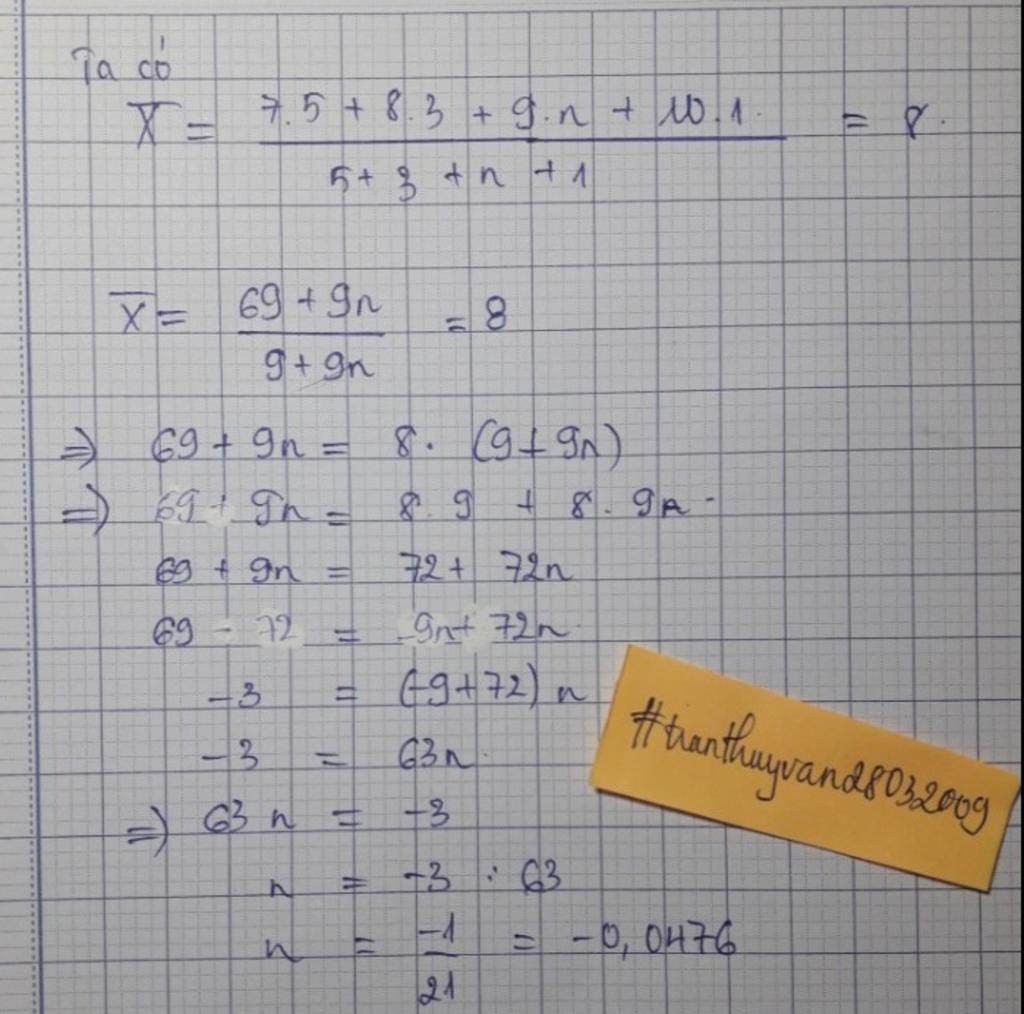 Ta có
X̅ = (7.5 + 8.3 + 9.n + 10.1.) / (5 + 3 + n + 1) = 8.
X̅ = (69 + 9n) / (9 + 9n) = 8
⇒ 69 + 9n = 8. (9 + 9n)
⇒ 69 + 9n = 8.9 + 8.9n.
69 + 9n = 72 + 72n
69 - 72 = -9n + 72n
-3 = (-9+72) n
-3 = 63n.
⇒ 63 n = -3
n = -3 : 63
n = -1/21 = -0,0476
#tranthuyvan28032009